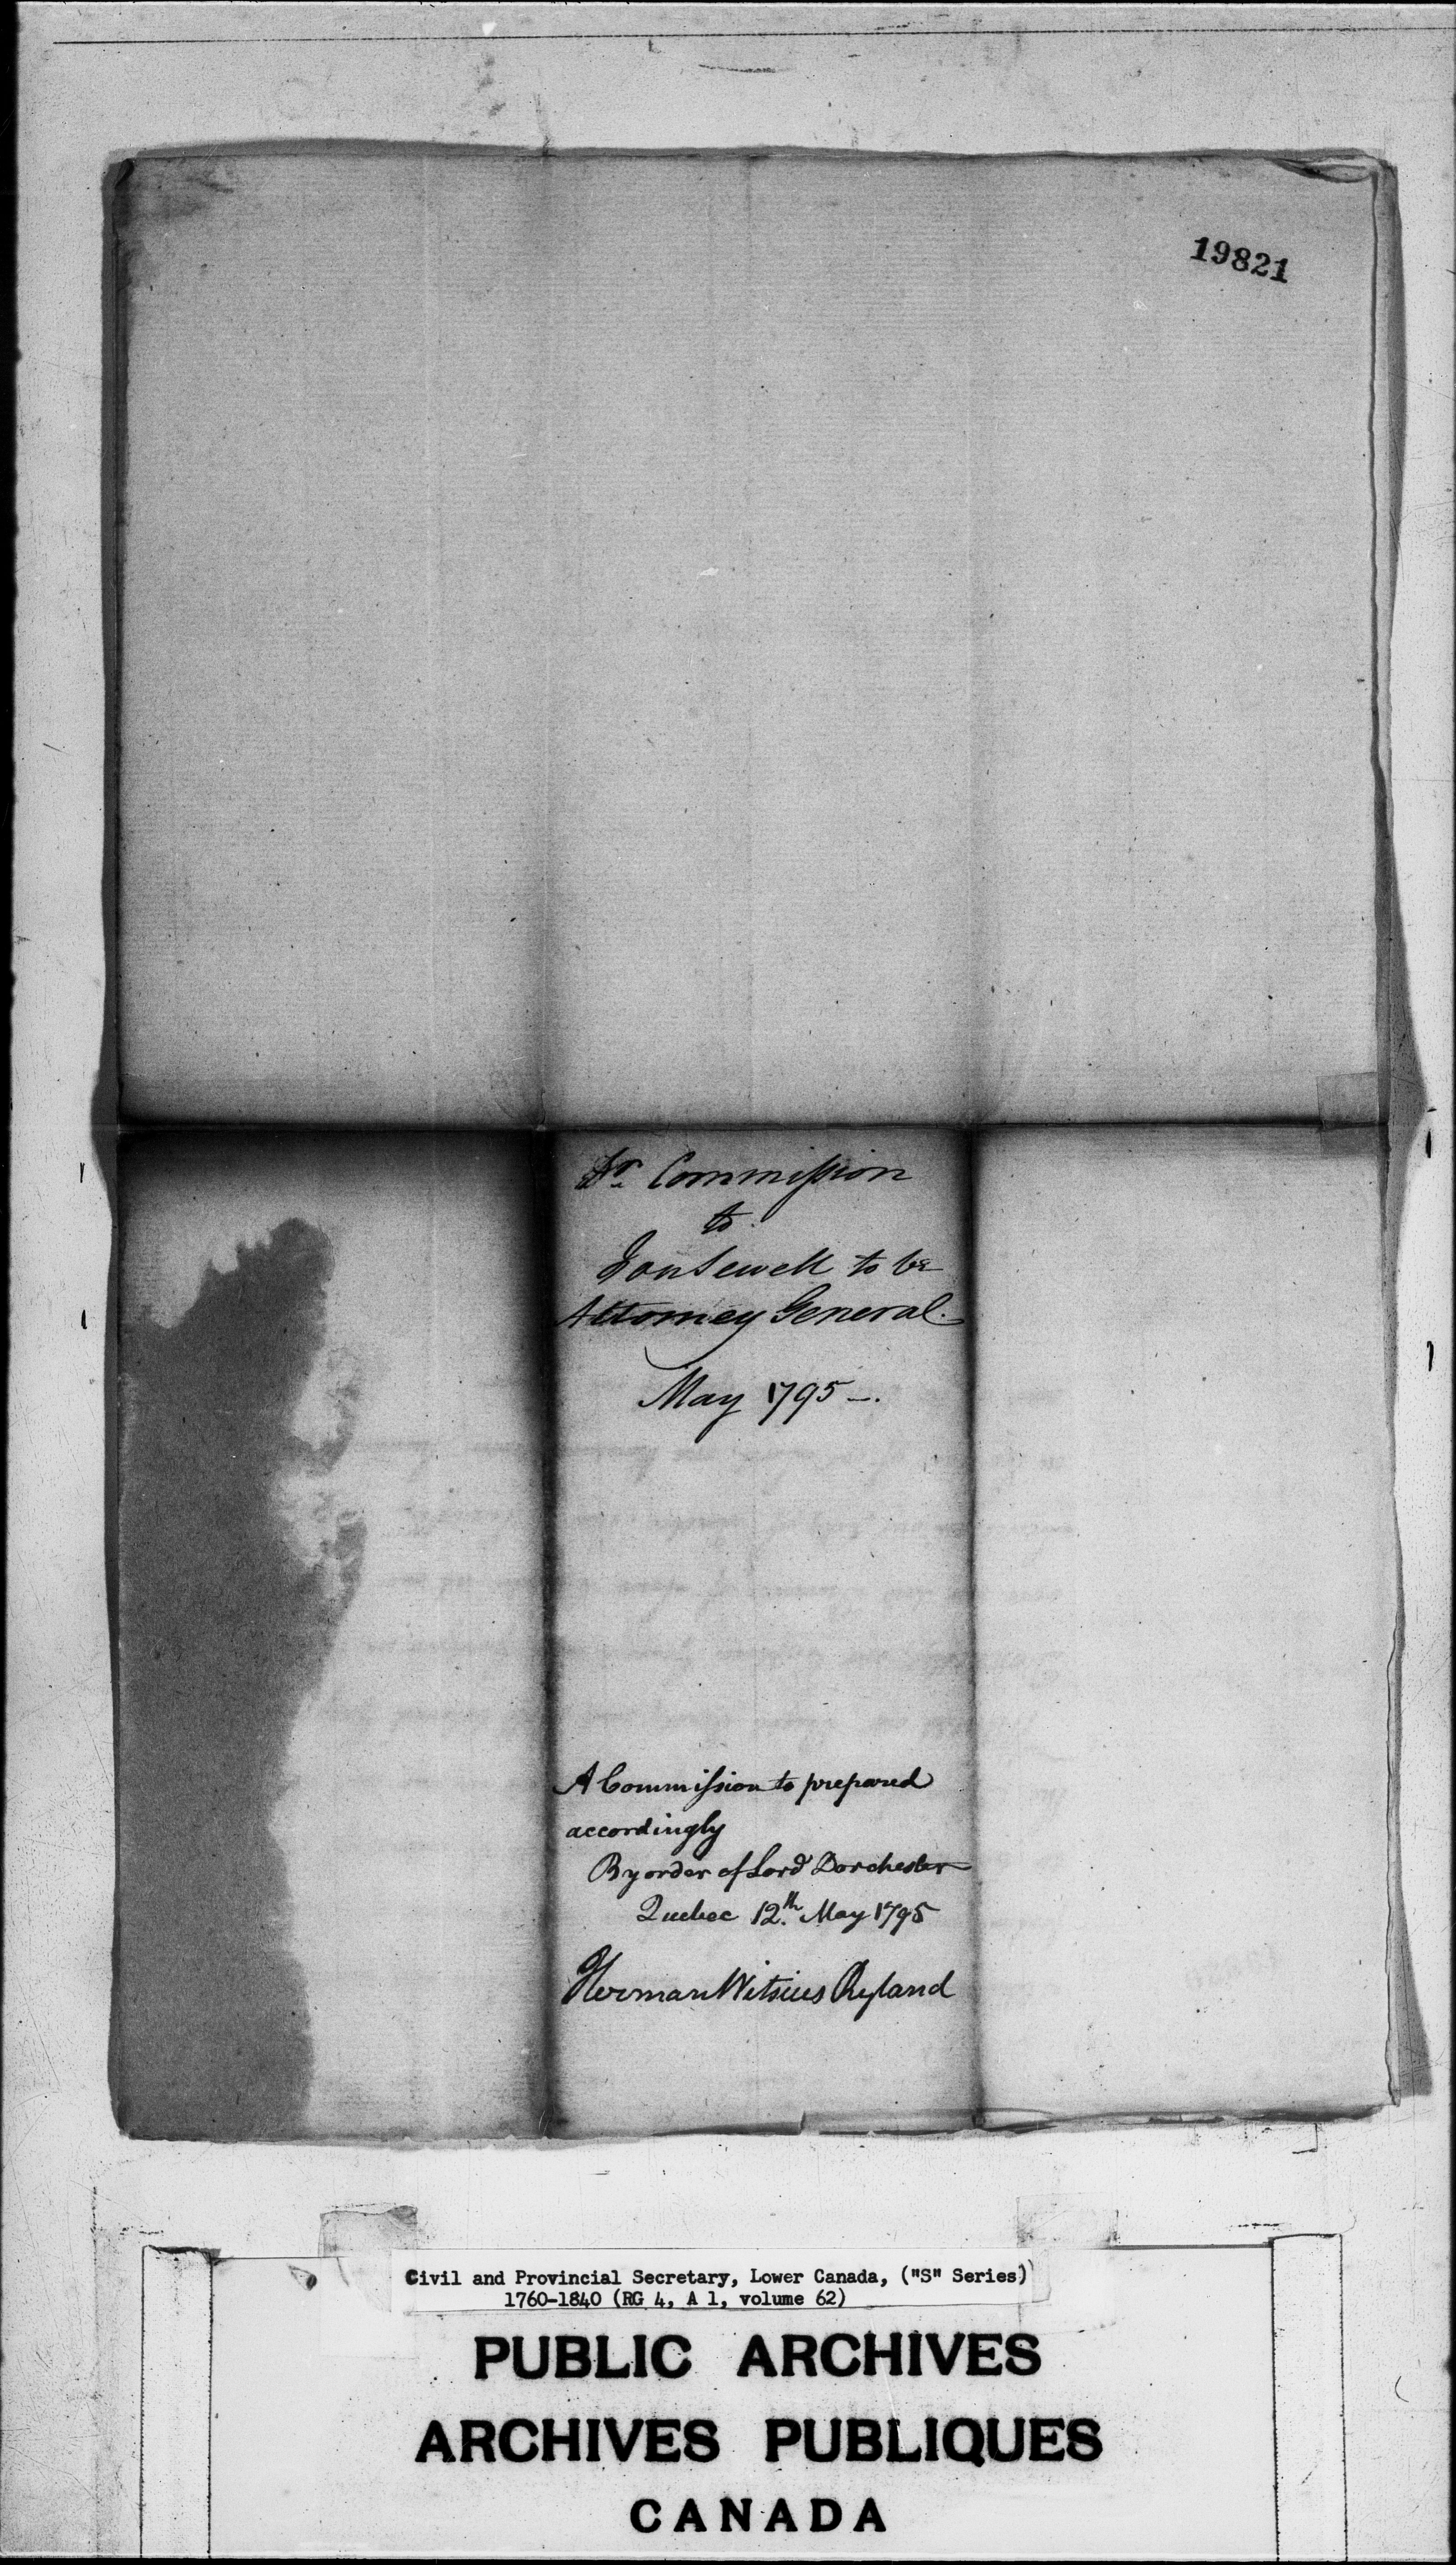 19821
Dr. Commission
to
Jon Sewell to be
Attorney General.
May 1795 -.
A Commission to prepared
accordingly
By order of Lord Dorchester
Quebec 12.th May 1795
Herman Witsius Ryland
Civil and Provincial Secretary, Lower Canada, ("S" Series)
1760-1840 (RG 4, A 1, volume 62)
PUBLIC ARCHIVES
ARCHIVES PUBLIQUES
CANADA